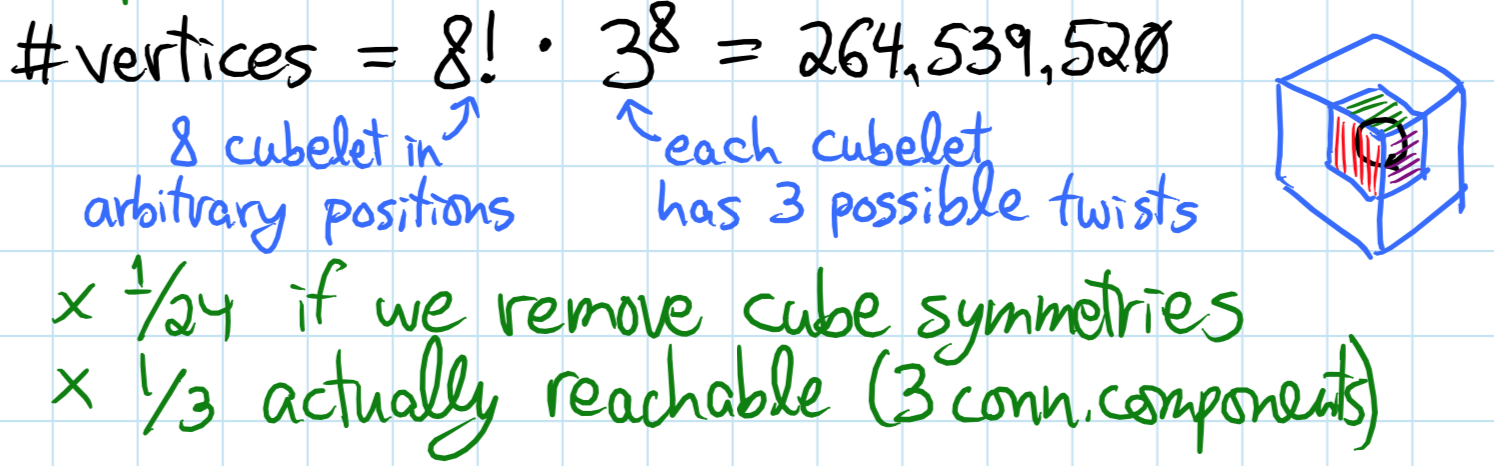 #vertices = 8! · 3⁸ = 264,539,520
8 cubelet in each cubelet
arbitrary positions has 3 possible twists
× 1/24 if we remove cube symmetries
× 1/3 actually reachable (3 conn. components)